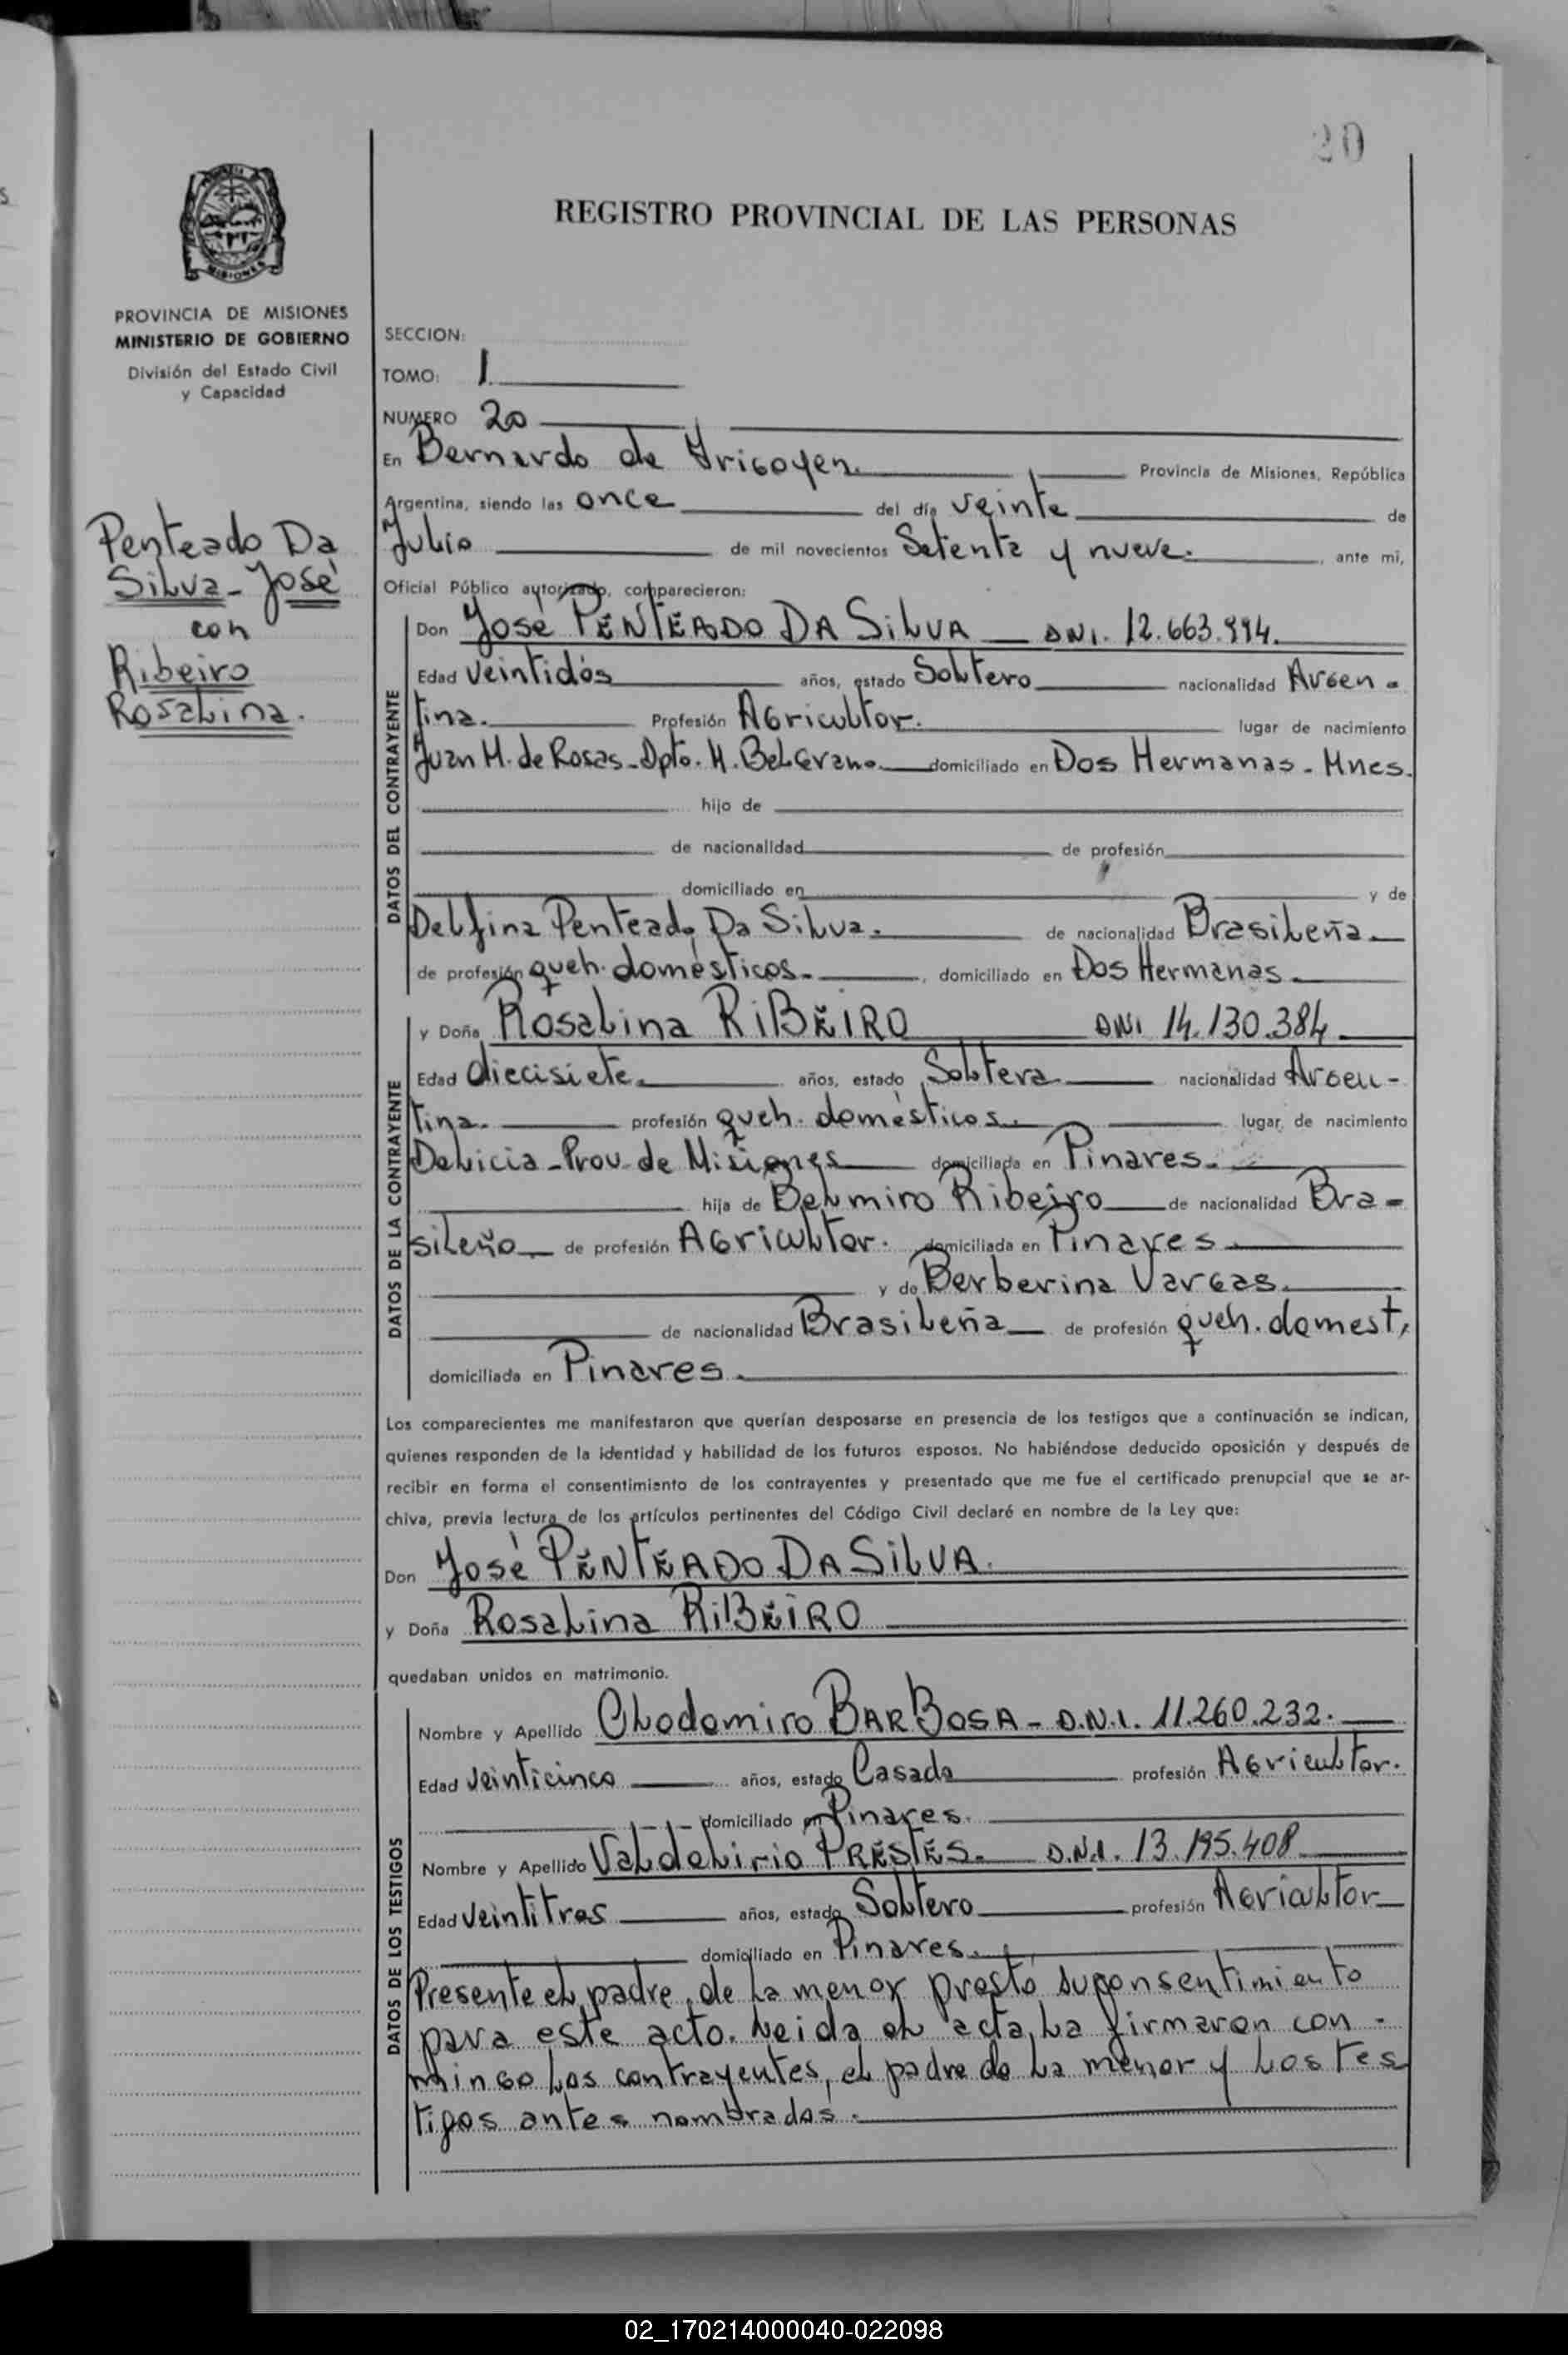 20
REGISTRO PROVINCIAL DE LAS PERSONAS
MISIONES
PROVINCIA DE MISIONES
MINISTERIO DE GOBIERNO
División del Estado Civil
y Capacidad
Penteado Da
Silva - José
con
Ribeiro
Rosalina.
SECCION:
TOMO: 1
NUMERO 20
En Bernardo de Yrigoyen. Provincia de Misiones, República
Argentina, siendo las once del día veinte de
Julio de mil novecientos Setenta y nueve. , ante mi,
Oficial Público autorizado, comparecieron:
DATOS DEL CONTRAYENTE
Don José PENTEADO DA SiLVA DNI. 12.663.994.
Edad veintidós años, estado Soltero nacionalidad Argen-
tina. Profesión Agricultor. lugar de nacimiento
Juan M. de Rosas - Dpto. M. Belgrano. domiciliado en Dos Hermanas - Mnes.
hijo de
de nacionalidad de profesión
domiciliado en y de
Delfina Penteado Da Silva. de nacionalidad Brasileña
de profesión queh. domésticos. , domiciliado en Dos Hermanas.
DATOS DE LA CONTRAYENTE
y Doña Rosalina RiBEIRO DNI 14.130.384
Edad diecisiete. años, estado Soltera nacionalidad Argen-
tina. profesión queh. domésticos. lugar de nacimiento
Delicia - Prov. de Misiones domiciliada en Pinares.
hija de Belmiro Ribeiro de nacionalidad Bra-
sileño de profesión Agricultor. domiciliada en Pinares.
y de Berberina Vargas.
de nacionalidad Brasileña de profesión queh. domest,
domiciliada en Pinares.
Los comparecientes me manifestaron que querían desposarse en presencia de los testigos que a continuación se indican,
quienes responden de la identidad y habilidad de los futuros esposos. No habiéndose deducido oposición y después de
recibir en forma el consentimiento de los contrayentes y presentado que me fue el certificado prenupcial que se ar-
chiva, previa lectura de los artículos pertinentes del Código Civil declaré en nombre de la Ley que:
Don José PENTEADO DA SiLVA.
y Doña Rosalina RiBEiRO
quedaban unidos en matrimonio.
DATOS DE LOS TESTIGOS
Nombre y Apellido Clodomiro BARBOSA - D.N.I. 11.260.232.
Edad veinticinco años, estado Casado profesión Agricultor.
domiciliado en Pinares.
Nombre y Apellido Valdelirio PRESTES. D.N.I. 13.195.408
Edad veintitres años, estado Soltero profesión Agricultor
domiciliado en Pinares.
Presente el padre de la menor prestó su consentimiento
para este acto. Leida el acta, la firmaron con-
migo los contrayentes, el padre de la menor y los tes
tigos antes nombrados.
02_170214000040-022098